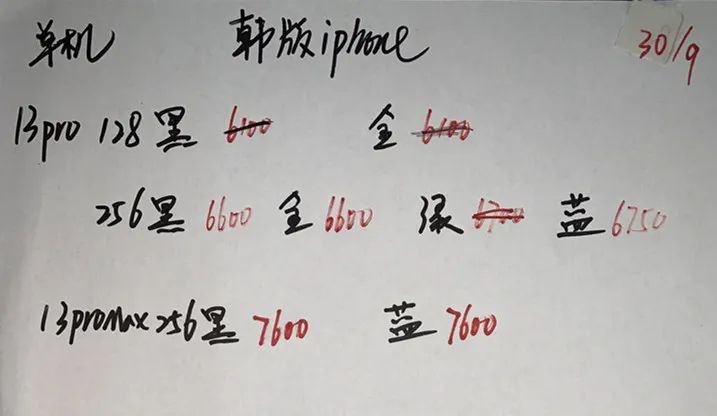 单机 韩版iphone 30/9
13pro 128黑 6100 金 6100
256黑 6600 金 6600 绿 6700 蓝 6750
13promax 256黑 7600 蓝 7600